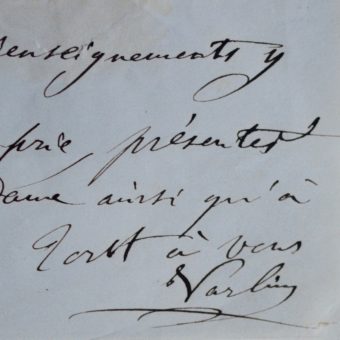 renseignements y
prie présenter
Dame ainsi qu'à
Tout à vous
Varlin